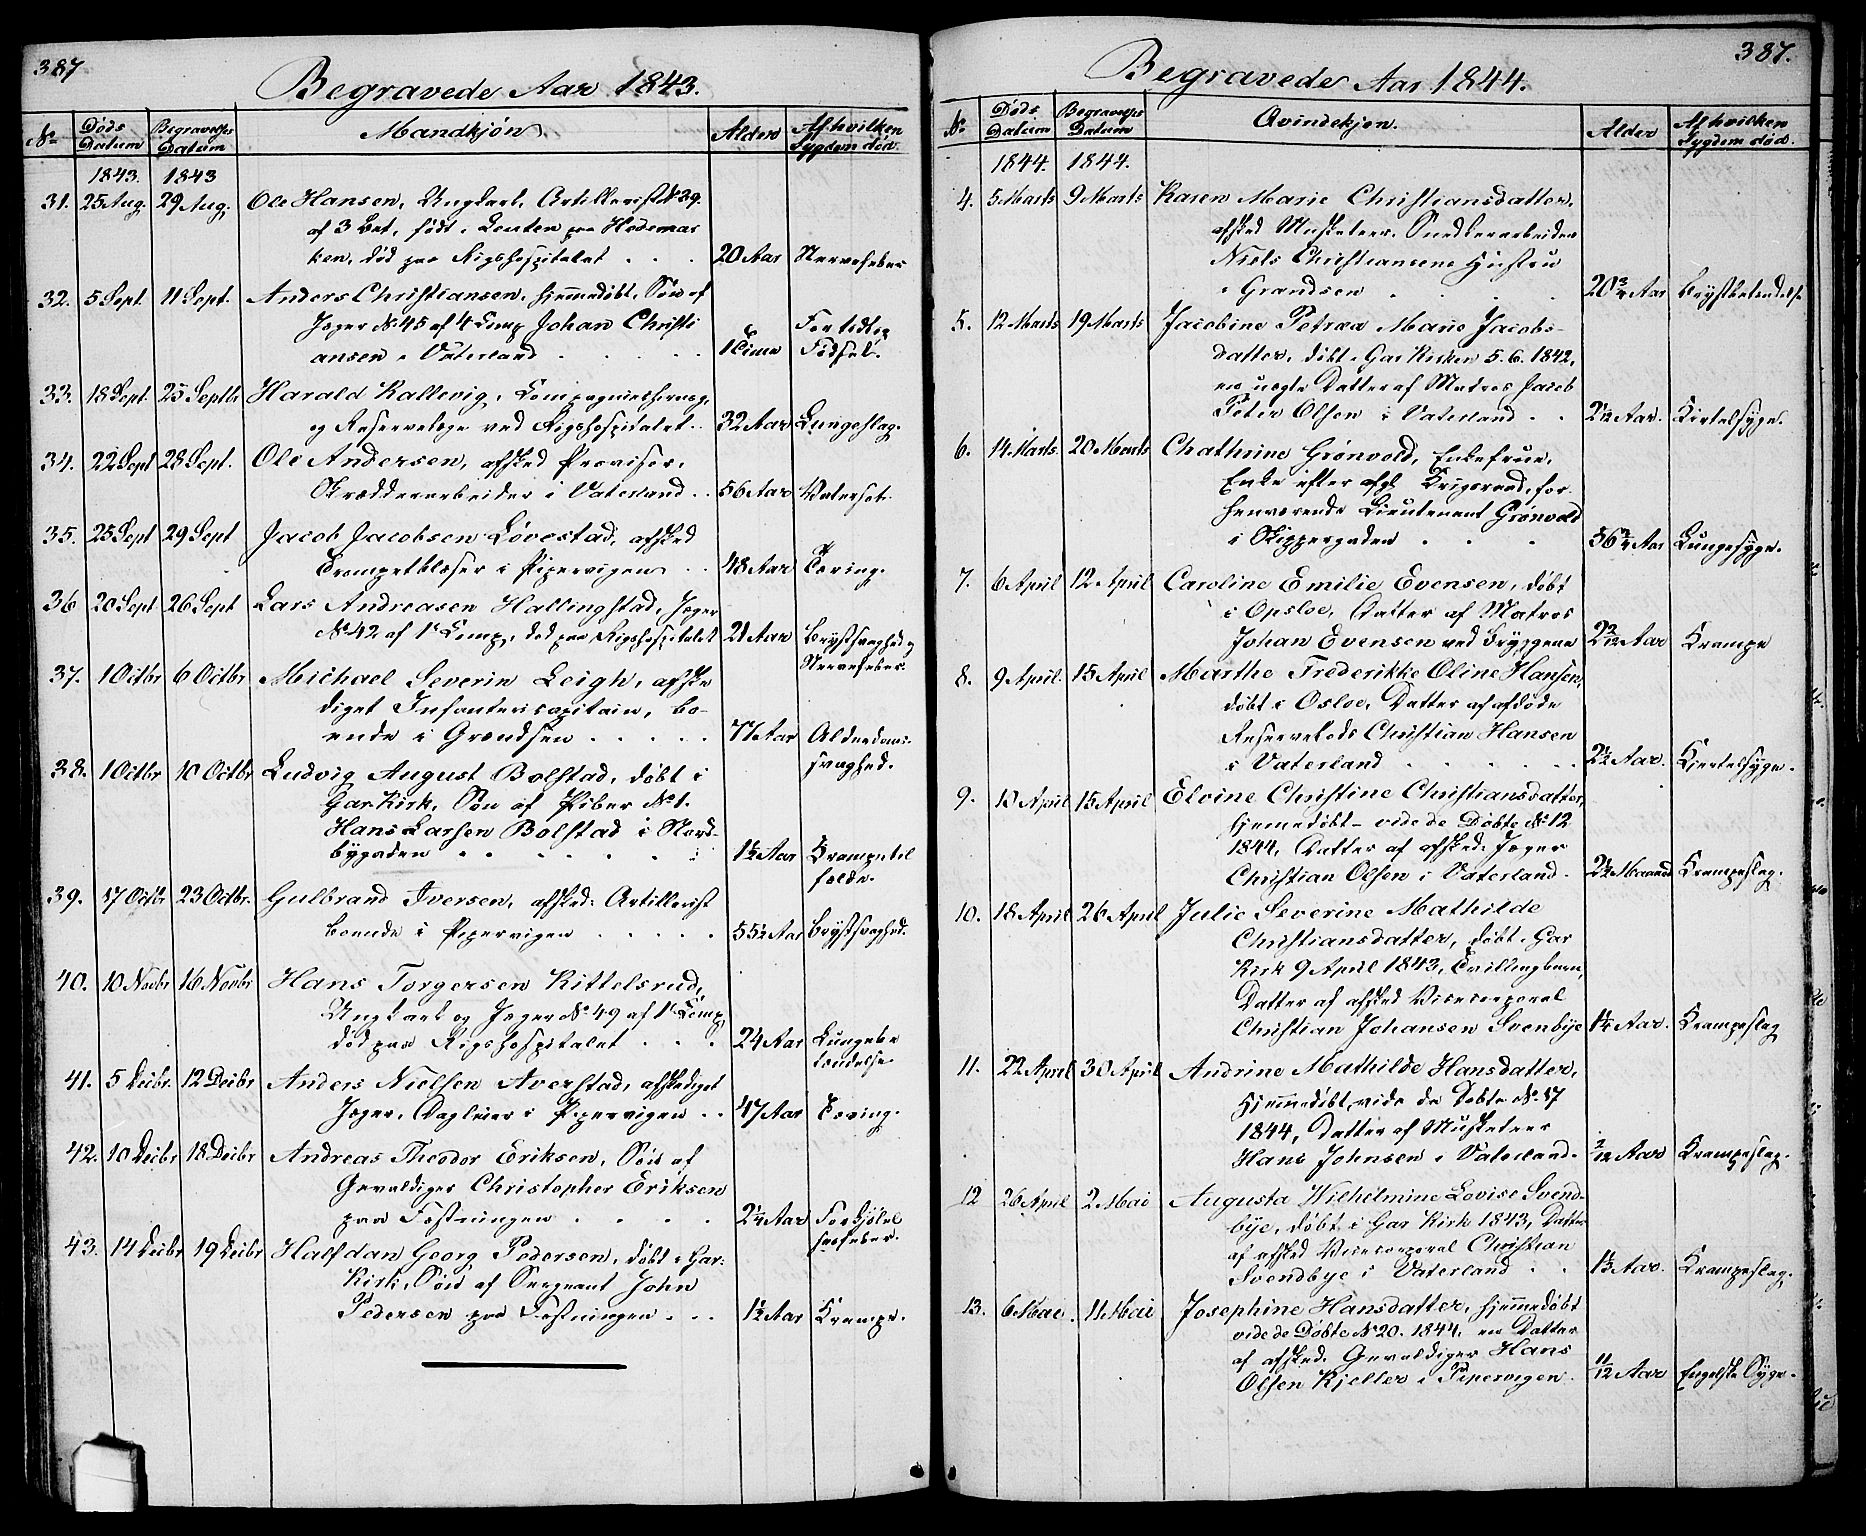 387
Begravede Aar 1843.
No
Døds Datum
Begravelses Datum
Mandkjøn.
Alder
Af hvilken Sygdom død.
1843. 1843
31. 25 Aug. 29 Aug. Ole Hansen, Ungkarl, Artillerist No 39.
af 3 Bat, født i Leuten paa Hedemar
ken, død paa Rigshospitalet . . . 20 Aar Nervefeber
32. 5 Sept. 11 Sept. Anders Christiansen, hjemmedøbt, Søn af
Jæger No 45 af 4 Comp Johan Christi
ansen i Vaterland . . . . . 1 Time For tidlig Fødsel.
33. 18 Sept. 25 Septbr Harald Kallevig, Compagniechirurg,
og Reservelæge ved Rigshospitalet . 32 Aar Lungeslag.
34. 22 Sept 28 Sept. Ole Andersen, afsked
Skrædderarbeider i Vaterland . . 56 Aar Vatersot.
35. 25 Sept 29 Sept Jacob Jacobsen Løvestad, afsked
Trompetblæser i Pipervigen . . 48 Aar Tæring.
36 20 Sept 26 Sept Lars Andreasen Hallingstad, Jæger
No 42 af 1e Comp, død paa Rigshospitalet 21 Aar Brystsvaghed og Nervefeber
37. 1 Octbr 6 Octbr Michael Severin Leigh, afske
diget Infantericapitain, bo-
ende i Grændsen . . . . . 77 Aar Alderdoms svaghed.
38. 1 Octbr 10 Octbr Ludvig August Bolstad, døbt i
Gar. Kirk, Søn af Piber No 1.
Hans Larsen Bolstad i Nord-
bygaden . . . . . . 1½ Aar Krampetil fælde.
39. 17 Octbr 23 Octbr. Gulbrand Iversen, afsked: Artillerist
boende i Pipervigen . . . . . 55½ Aar Brystsvaghed.
40. 10 Novbr 16 Novbr Hans Torgersen Kittelsrud,
Ungkarl og Jæger No 49 af 1e Comp,
død paa Rigshospitalet . . . 24 Aar Lungebe tændelse.
41. 5 Decbr. 12 Decbr Anders Nielsen Averstad, afskediget
Jæger, Dagleier i Pipervigen . . 47 Aar Tæring.
42. 10 Decbr 18 Decbr Andreas Theodor Eriksen, Søn af
Gevaldiger Christopher Eriksen
paa Fæstningen . . . . 2¼ Aar Forkjølel sesfeber.
43. 14 Decbr 19 Decbr Halfdan Georg Pedersen, døbt i Gar:
Kirk, Søn af Sergeant John
Pedersen paa Fæstningen . . . 1½ Aar Krampe.
387.
Begravede Aar 1844.
No
Døds Datum
Begravelses Datum
Qvindekjøn.
Alder
Af hvilken Sygdom død.
1844. 1844.
4. 5 Marts 9 Marts Karen Marie Christiansdatter,
afsked Musketeer, Snedkerarbeider
Niels Christiansens Hustru
i Grændsen . . . . Aar Brystbetændelse
5. 12 Marts 19 Marts Jacobine Petrea Marie Jacobs-
datter, døbt i Gar Kirken 5.6.1842,
en uægte Datter af Matros Jacob
Peter Olsen i Vaterland . . Aar. Kirtelsyge.
6. 14 Marts. 20 Marts Chathrine Grønvold, Enkefrue,
Enke efter afg. Krigsraad, for-
henværende Lieutenant Grønvold
i Skippergaden . . . . Aar Lungesyge.
7. 6 April 12 April Caroline Emilie Evensen, døbt
i Opsloe, Datter af Matros
Johan Evensen ved Bryggene Aar Krampe
8. 9 April. 15 April Marthe Frederikke Oline Hansen,
døbt i Osloe, Datter af afdøde
Christian Hansen
i Vaterland . . . . . 2½ Aar. Kjertelsyge.
9. 10 April 15 April Elvine Christine Christiansdatter,
hjemedøbt - vide de Døbte No 12
1844, Datter af afsked: Jæger
Christian Olsen i Vaterland. 2½ Maaned Krampeslag.
10. 18 April 26 April Julie Severine Mathilde
Christiansdatter, døbt i Gar
Kirk 9 April 1843, Tvillingbarn,
Datter af afsked Vicecorporal
Christian Johansen Svenbye Aar. Krampeslag
11. 22 April 30 April Andrine Mathilde Hansdatter,
hjemmedøbt, vide de Døbte No 17
1844, Datter af Musketeer
Hans Johnsen i Vaterland. 2/12 Aar Krampeslag.
12 26 April 2 Mai Augusta Wilhelmine Lovise Svend-
bye, døbt i Gar Kirk 1843, Datter
af afsked Vicecorporal Christian
Svendbye i Vaterland . . Aar. Krampeslag.
13. 6 Mai . 11 Mai Josephine Hansdatter, hjemmedøbt
vide de Døbte No 20. 1844, en Datter
af afsked. Gevaldiger Hans
Olsen Kjeller i Pipervigen. 11/12 Aar Engelske Syge.